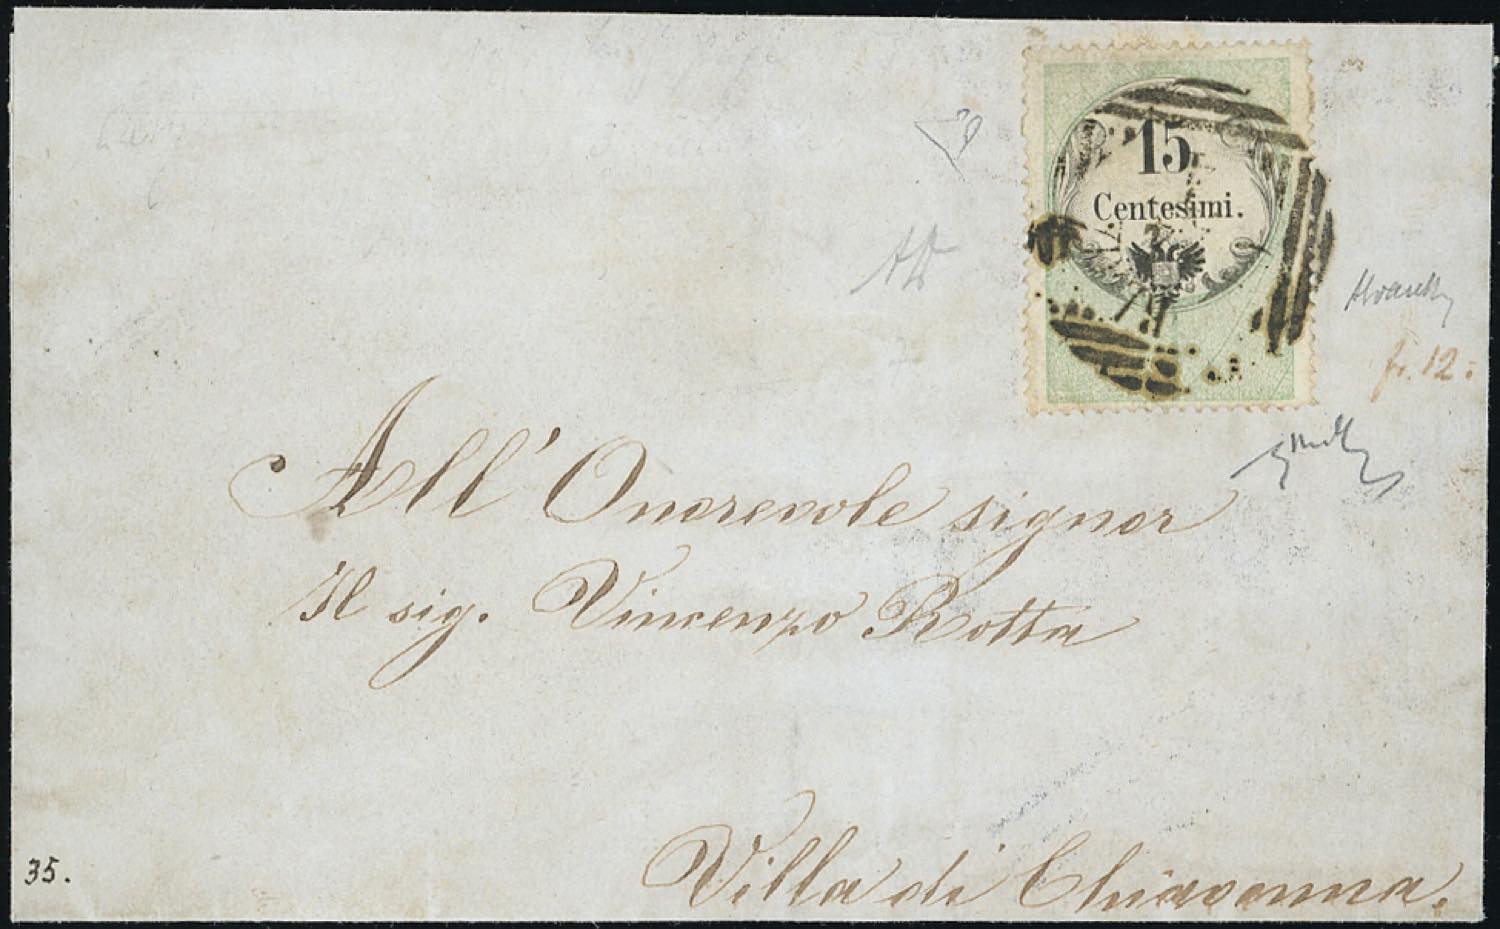 15
Centesimi.
fr. 12:
All' Onorevole signor
Il sig. Vincenzo Rotta
35.
Villa di Chiavenna.